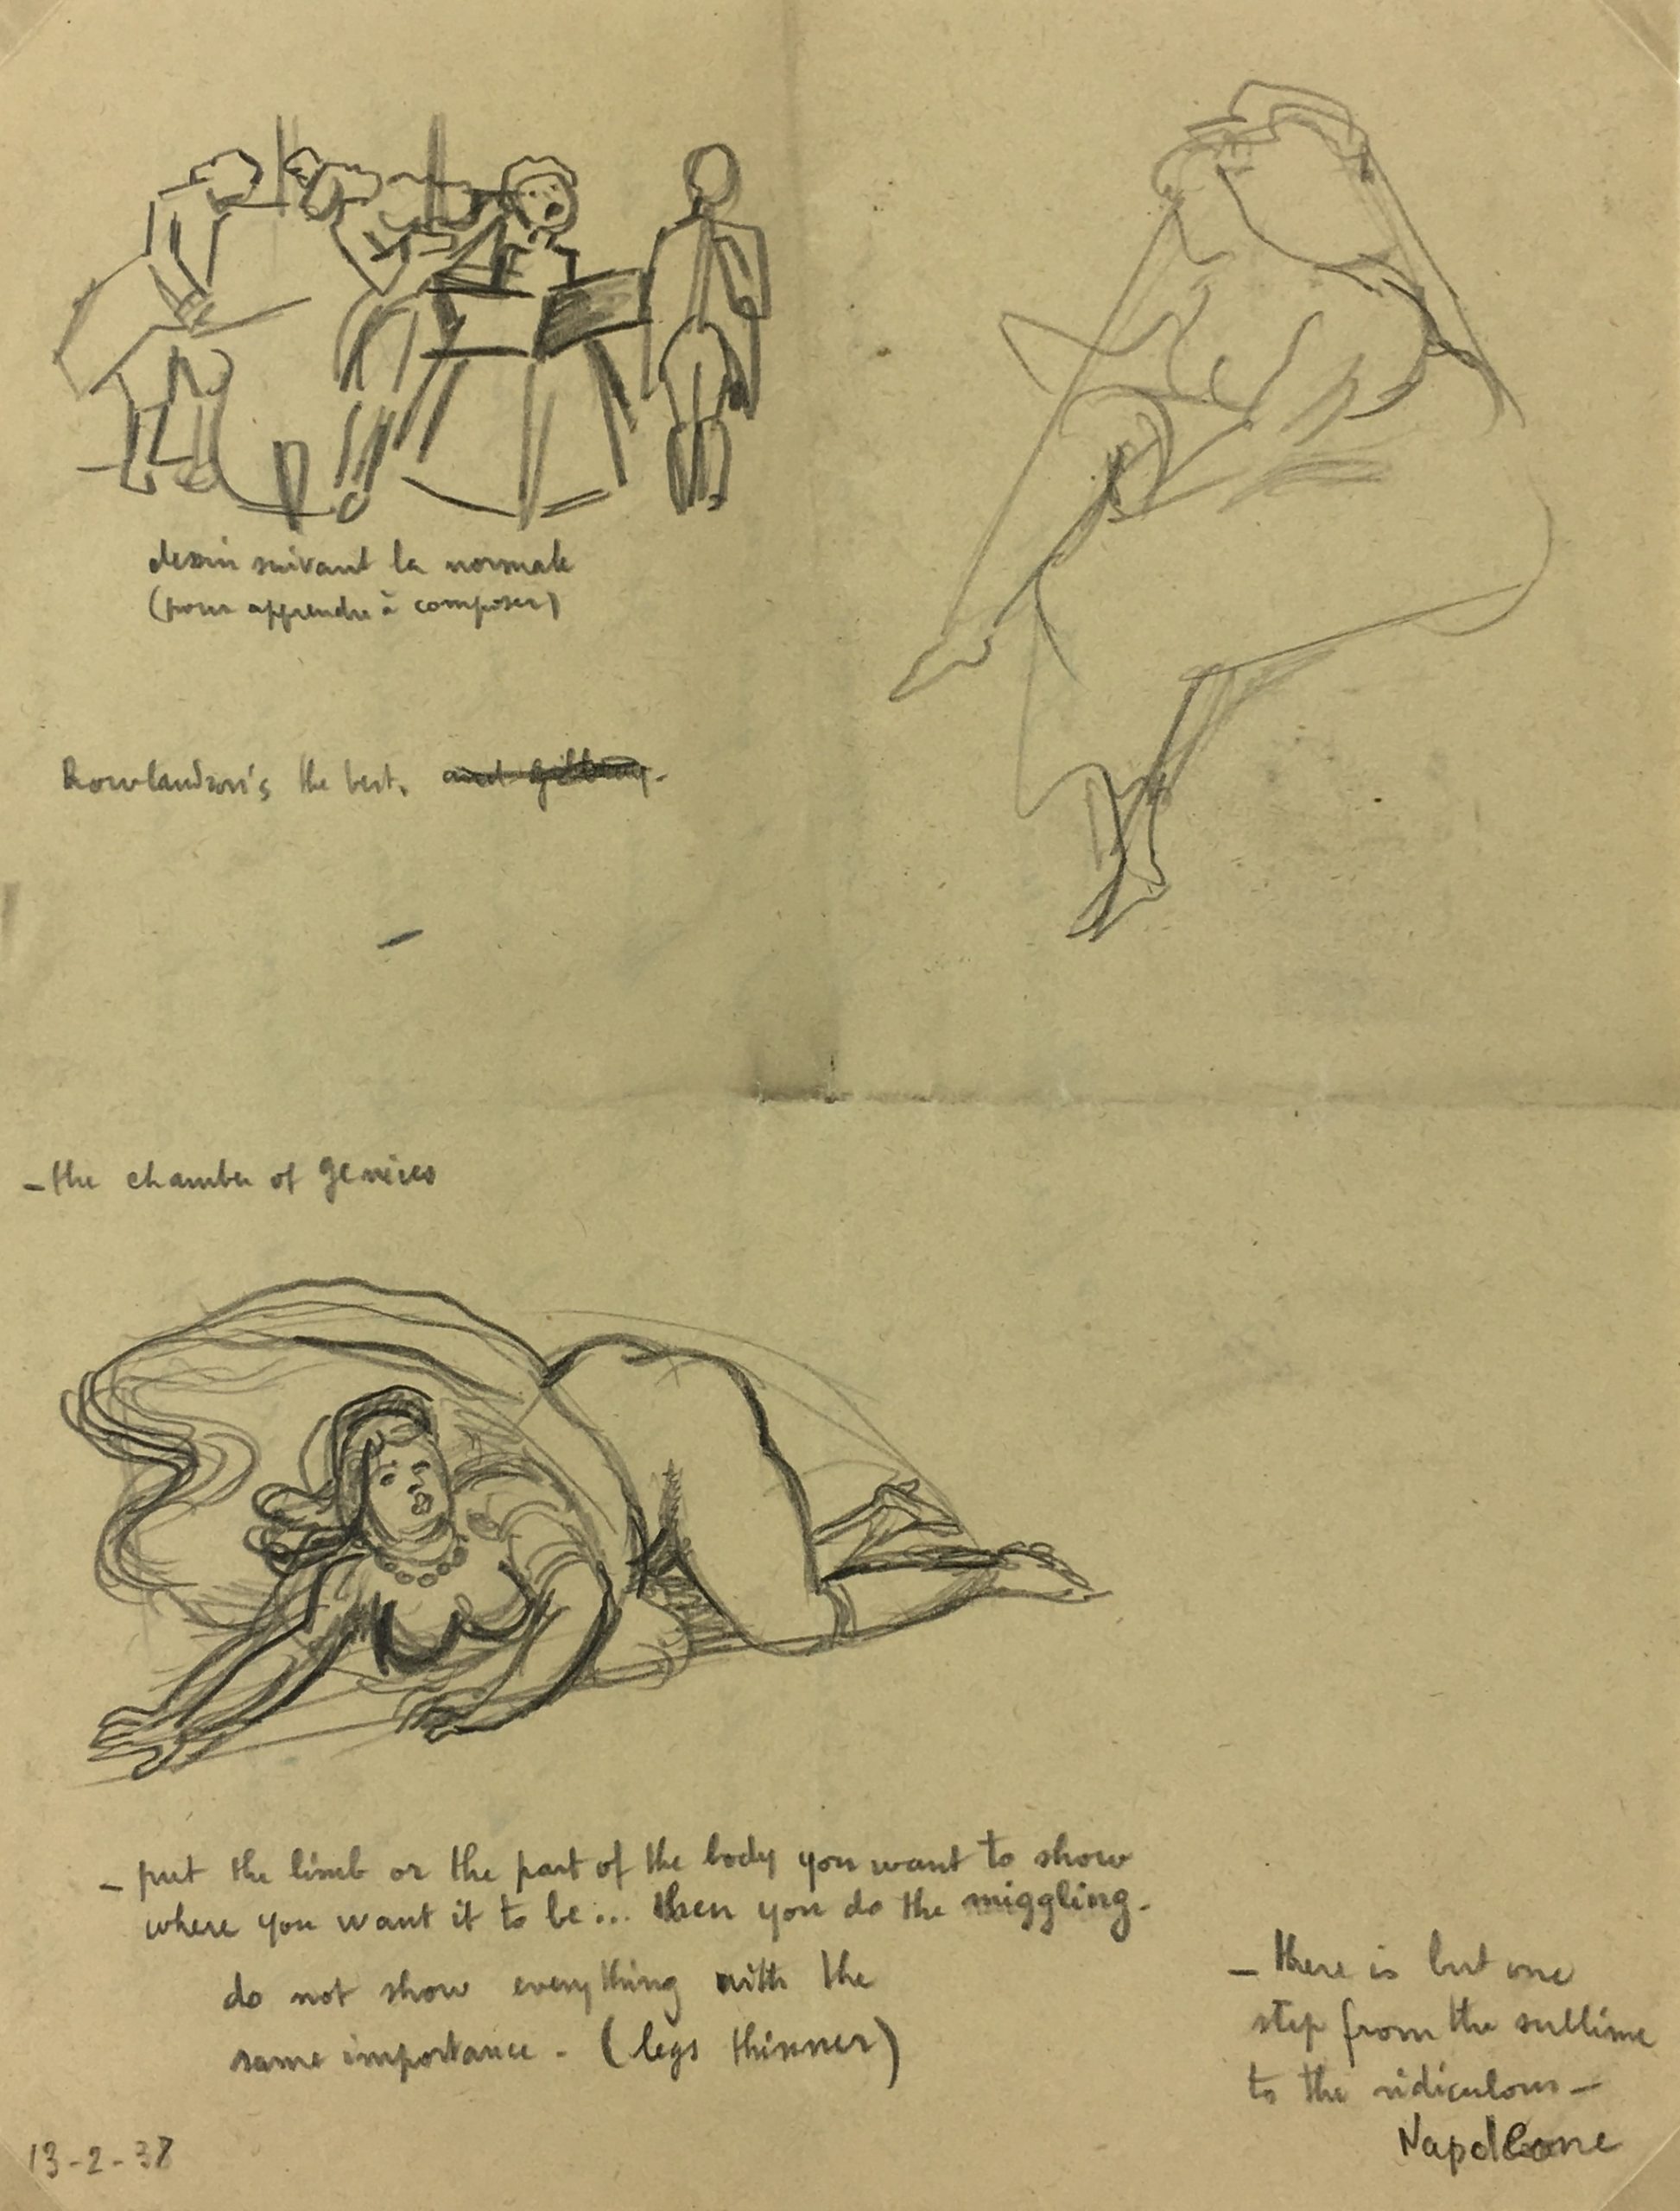 dessin suivant la normale
(pour apprendre à composer)
Rowlandson's the best. and Gillray.
- the chamber of genius
- put the limb or the part of the body you want to show
where you want it to be... then you do the
do not show everything with the
same importance - (legs thinner)
- there is but one
step from the sublime
to the ridiculous -
Napoleone
13-2-38